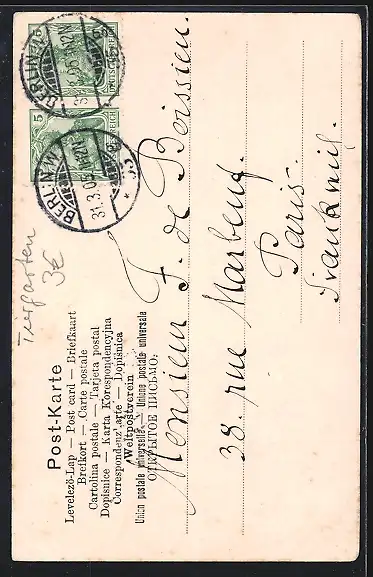 Post-Karte
Levelező-Lap — Post card — Briefkaart
Brefkort — Carte postale
Cartolina postale — Tarjeta postal
Dopisnice — Karta Korespondencyjna
Correspondenz carte — Dopišnica
Weltpostverein
Union postale universelle — Unione postale universale
ОТКРЫТОЕ ПИСЬМО.
Monsieur F. de Boissieu.
38. rue Marbeuf.
Paris.
Frankreich.
Tiergarten
3€
BERLIN N.W.
31.3.05.
5
5
BERLIN